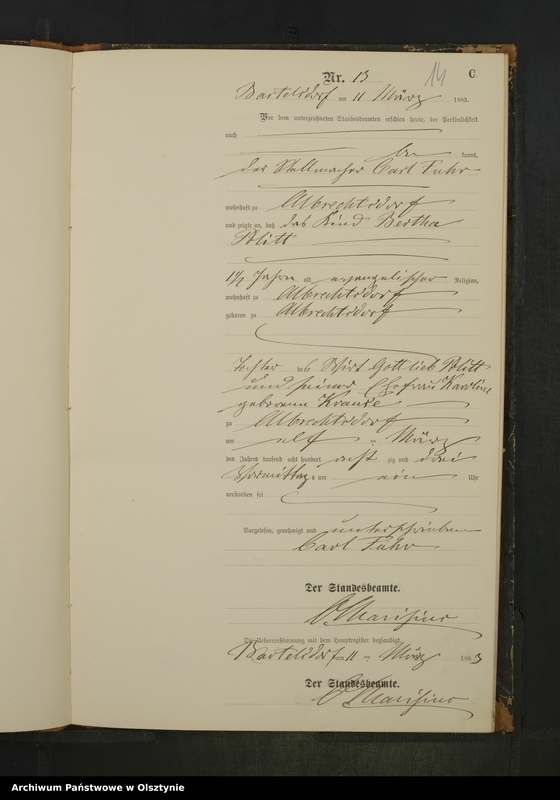 Nr. 13
14
C.
Bartelsdorf am 11 März 1883.
Vor dem unterzeichneten Standesbeamten erschien heute, der Persönlichkeit
nach
be kannt,
der Stellmacher Carl Fuhr
wohnhaft zu Albrechtsdorf
und zeigte an, daß das Kind Bertha
Politt
1 1/2 Jahre alt evangelischer Religion,
wohnhaft zu Albrechtsdorf
geboren zu Albrechtsdorf
Tochter des Wirt Gottlieb Politt
und seiner Ehefrau Karoline
geborene Krause
zu Albrechtsdorf
am elf ten März
des Jahres tausend acht hundert acht zig und drei
Vormittags um ein Uhr
verstorben sei
Vorgelesen, genehmigt und unterschrieben
Carl Fuhr
Der Standesbeamte.
Die Uebereinstimmung mit dem Hauptregister beglaubigt.
Bartelsdorf am 11 ten März 1883
Der Standesbeamte.
Archiwum Państwowe w Olsztynie